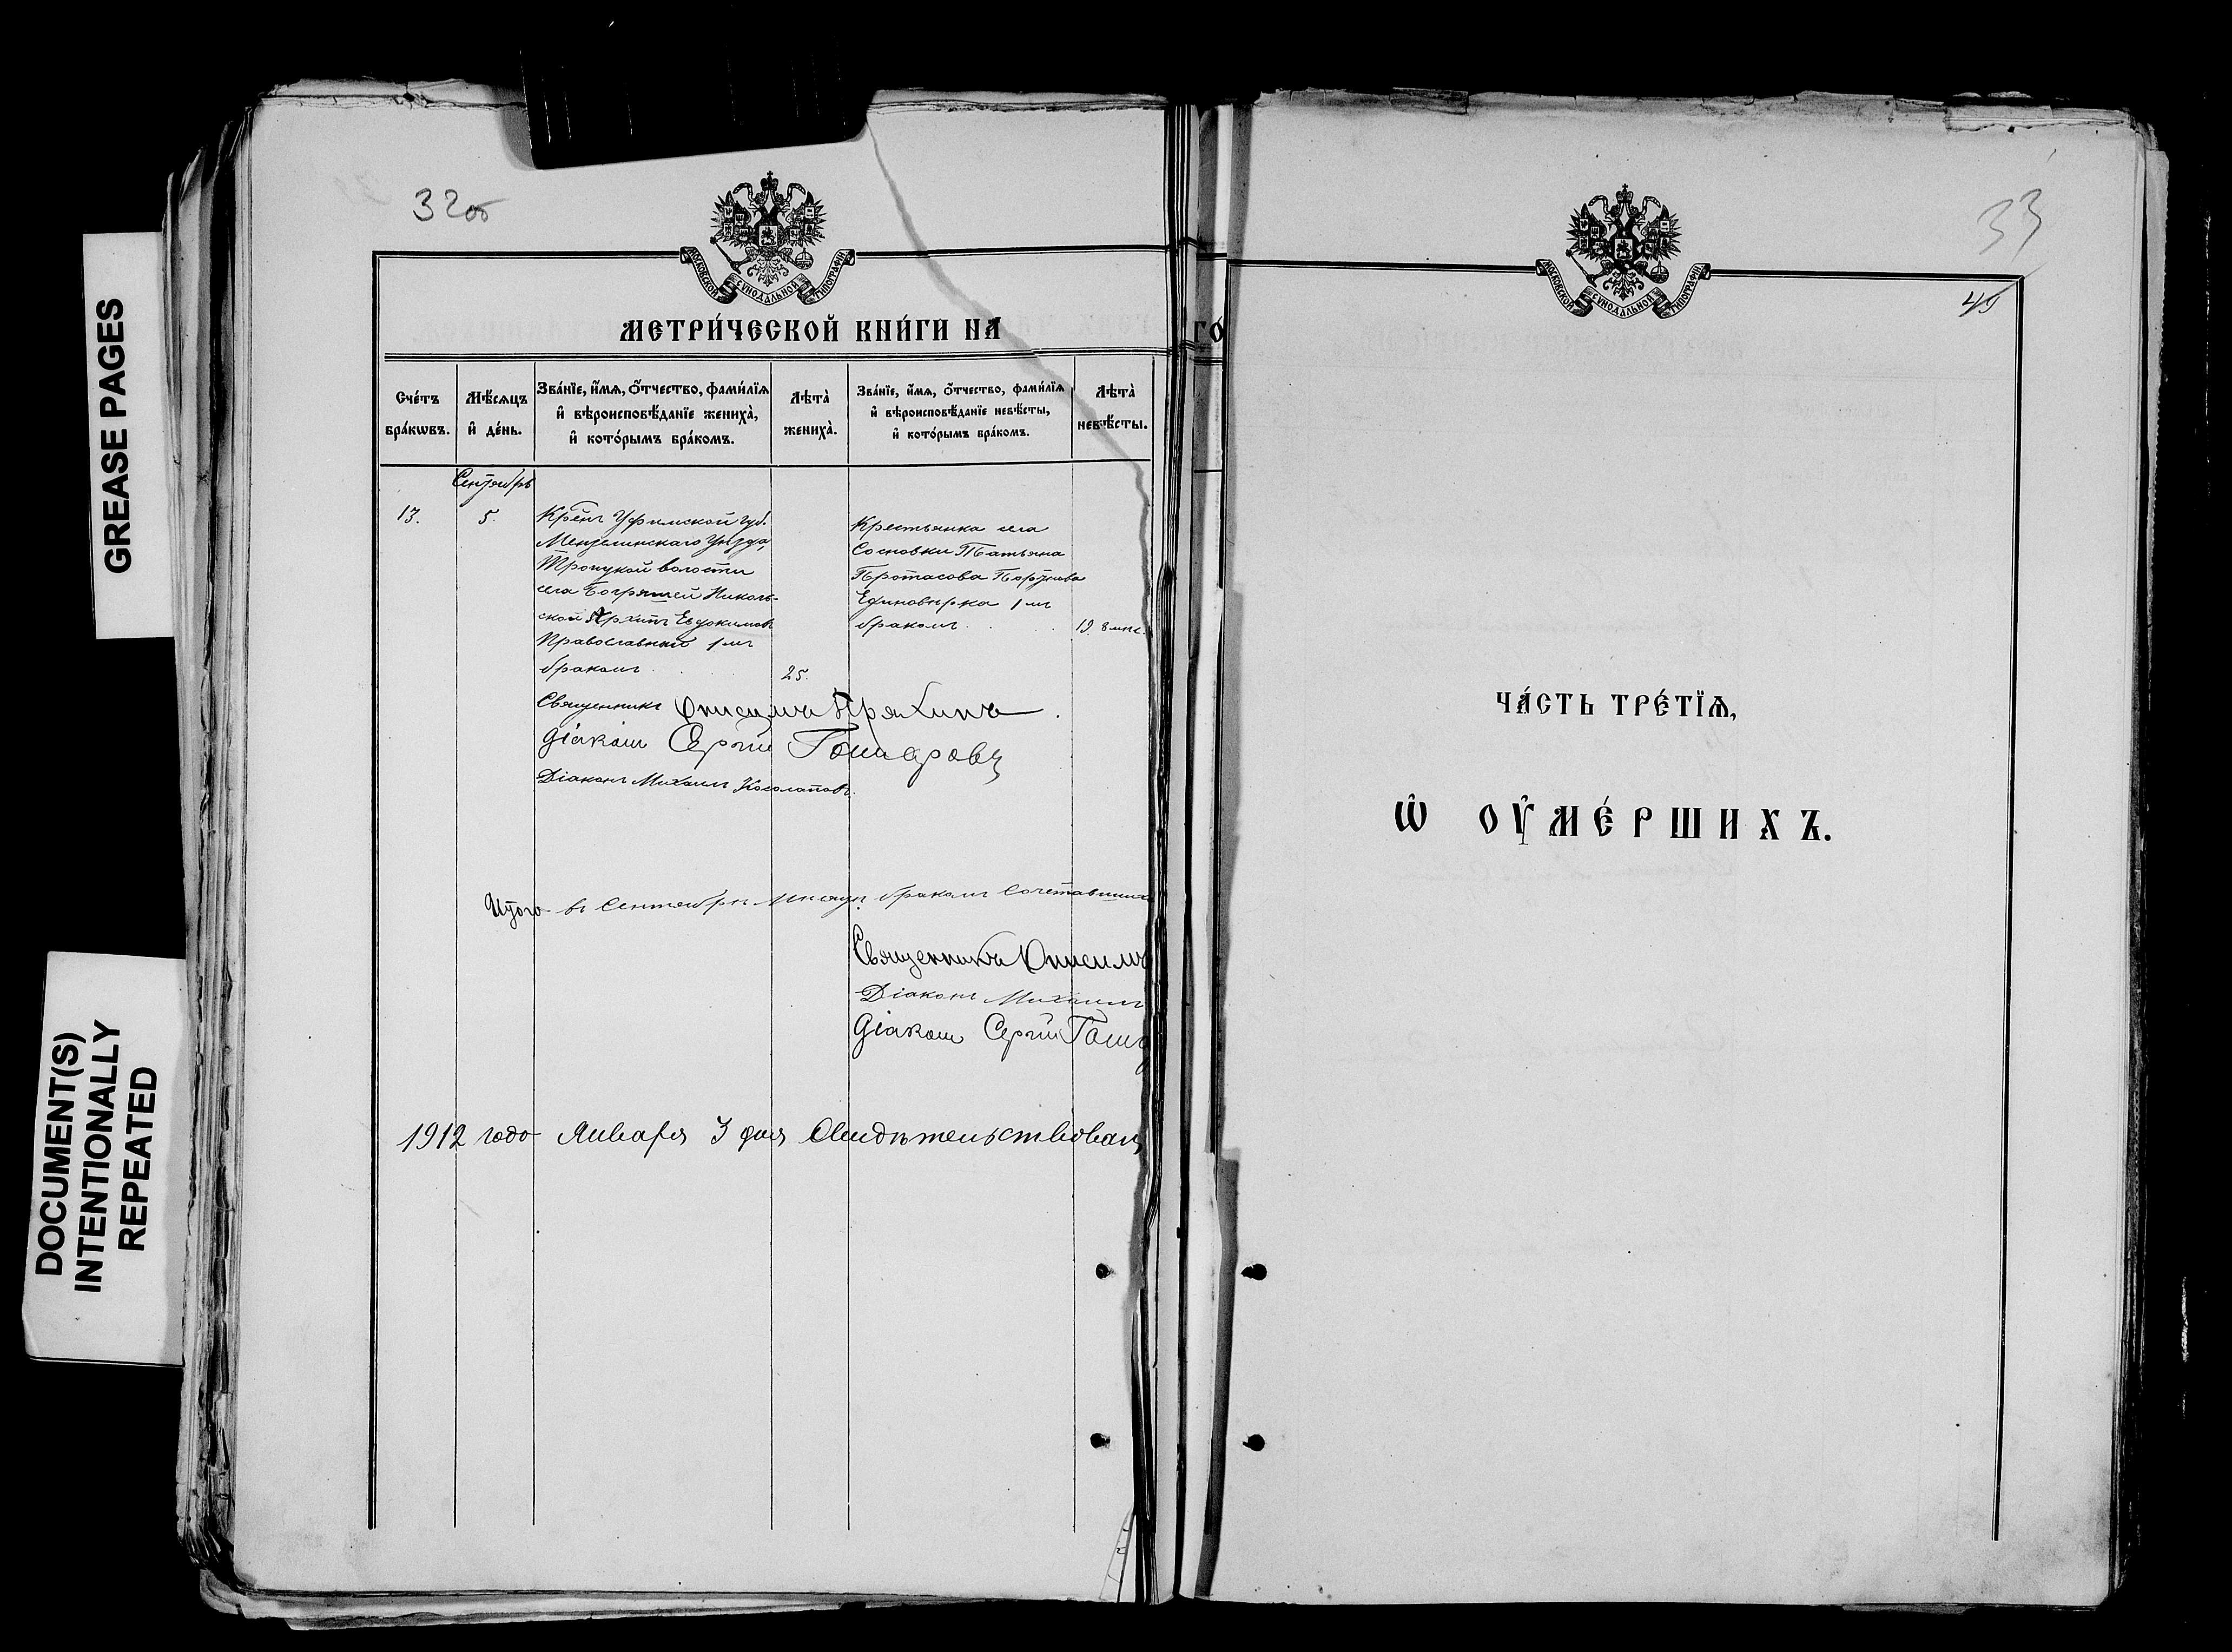 GREASE PAGES
DOCUMENT(S)
INTENTIONALLY
REPEATED
32об
МОСКОВСКОЙ СѴНОДАЛЬНОЙ ТИПОГРАФІИ
МЕТРИ́ЧЕСКОЙ КНИ́ГИ НА
Сче́тъ бра́кѡвъ.
Мѣ́сяцъ и҆ де́нь.
Зва́нїе, и҆́мѧ, ѻ҆́тчество, фами́лїѧ
и҆ вѣроисповѣ́данїе жениха̀,
и҆ кото́рымъ бра́комъ.
Лѣта̀ жениха̀.
Зва́нїе, и҆́мѧ, ѻ҆́тчество, фами́лїѧ
и҆ вѣроисповѣ́данїе невѣ́сты,
и҆ кото́рымъ бра́комъ.
Лѣта̀ невѣ́сты.
Сентябрь
13.
5.
Крѣнъ Уфимской губ.
Мензелинскаго уѣзда,
Троицкой волости
села Николь-
ской Архипъ Евдокимовъ
Православный 1мъ
бракомъ
25.
Крестьянка села
Сосновки Татьяна
Протасова
Единовѣрка 1мъ
бракомъ
19. 8 мѣс.
Священникъ Онисимъ Пряхинъ.
Діаконъ Сергій Гончаровъ
Діаконъ Михаилъ Косолаповъ.
Итого въ Сентябрѣ мѣсяцѣ бракомъ сочетавшихся
Священникъ Онисимъ
Діаконъ Михаилъ
Діаконъ Сергій Гонча
1912 года Января 3 дня Свидѣтельствовалъ
ГО
33
МОСКОВСКОЙ СѴНОДАЛЬНОЙ ТИПОГРАФІИ
ЧА́СТЬ ТРЕ́ТЇѦ,
Ѽ ОУ҆МЕ́РШИХЪ.